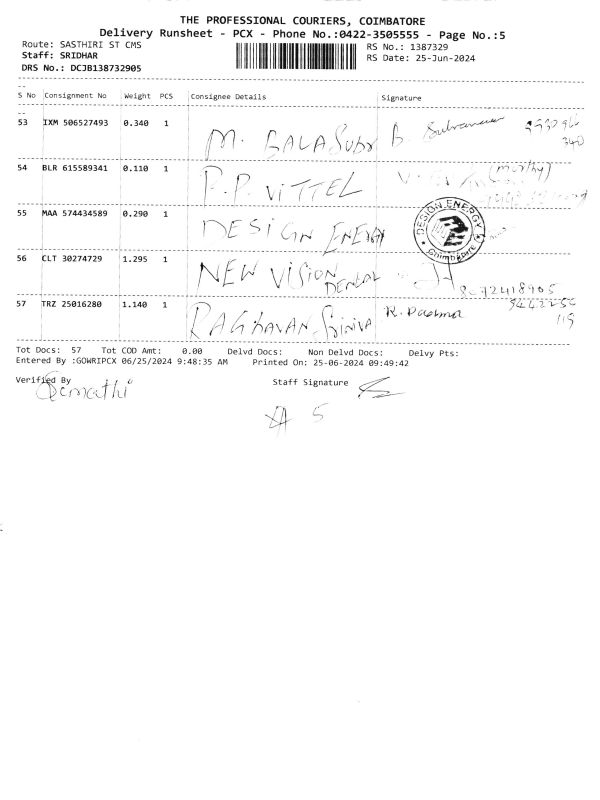 THE PROFESSIONAL COURIERS, COIMBATORE
Delivery Runsheet - PCX - Phone No.:0422-3505555 - Page No.:5
Route: SASTHIRI ST CMS
RS No.: 1387329
Staff: SRIDHAR
RS Date: 25-Jun-2024
DRS No.: DCJB138732905
S No Consignment No Weight PCS Consignee Details Signature
53 IXM 506527493 0.340 1 M. BALASUBR B.
54 BLR 615589341 0.110 1 P.P. VITTEL (Murthy)
55 MAA 574434589 0.290 1 DESIGN ENERGY
DESIGN ENERGY
Coimbatore
56 CLT 30274729 1.295 1 NEW VISION
DENTAL
57 TRZ 25016280 1.140 1 RAGHAVAN SRINIVA R. Padma
Tot Docs: 57 Tot COD Amt: 0.00 Delvd Docs: Non Delvd Docs: Delvy Pts:
Entered By :GOWRIPCX 06/25/2024 9:48:35 AM Printed On: 25-06-2024 09:49:42
Verified By Staff Signature
5